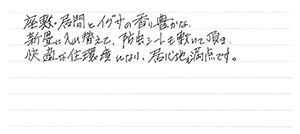 座敷・居間とイグサの香り豊かな
新畳に入れ替えて、防虫シートも敷いて頂き
快適な住環境になり、居心地も満点です。